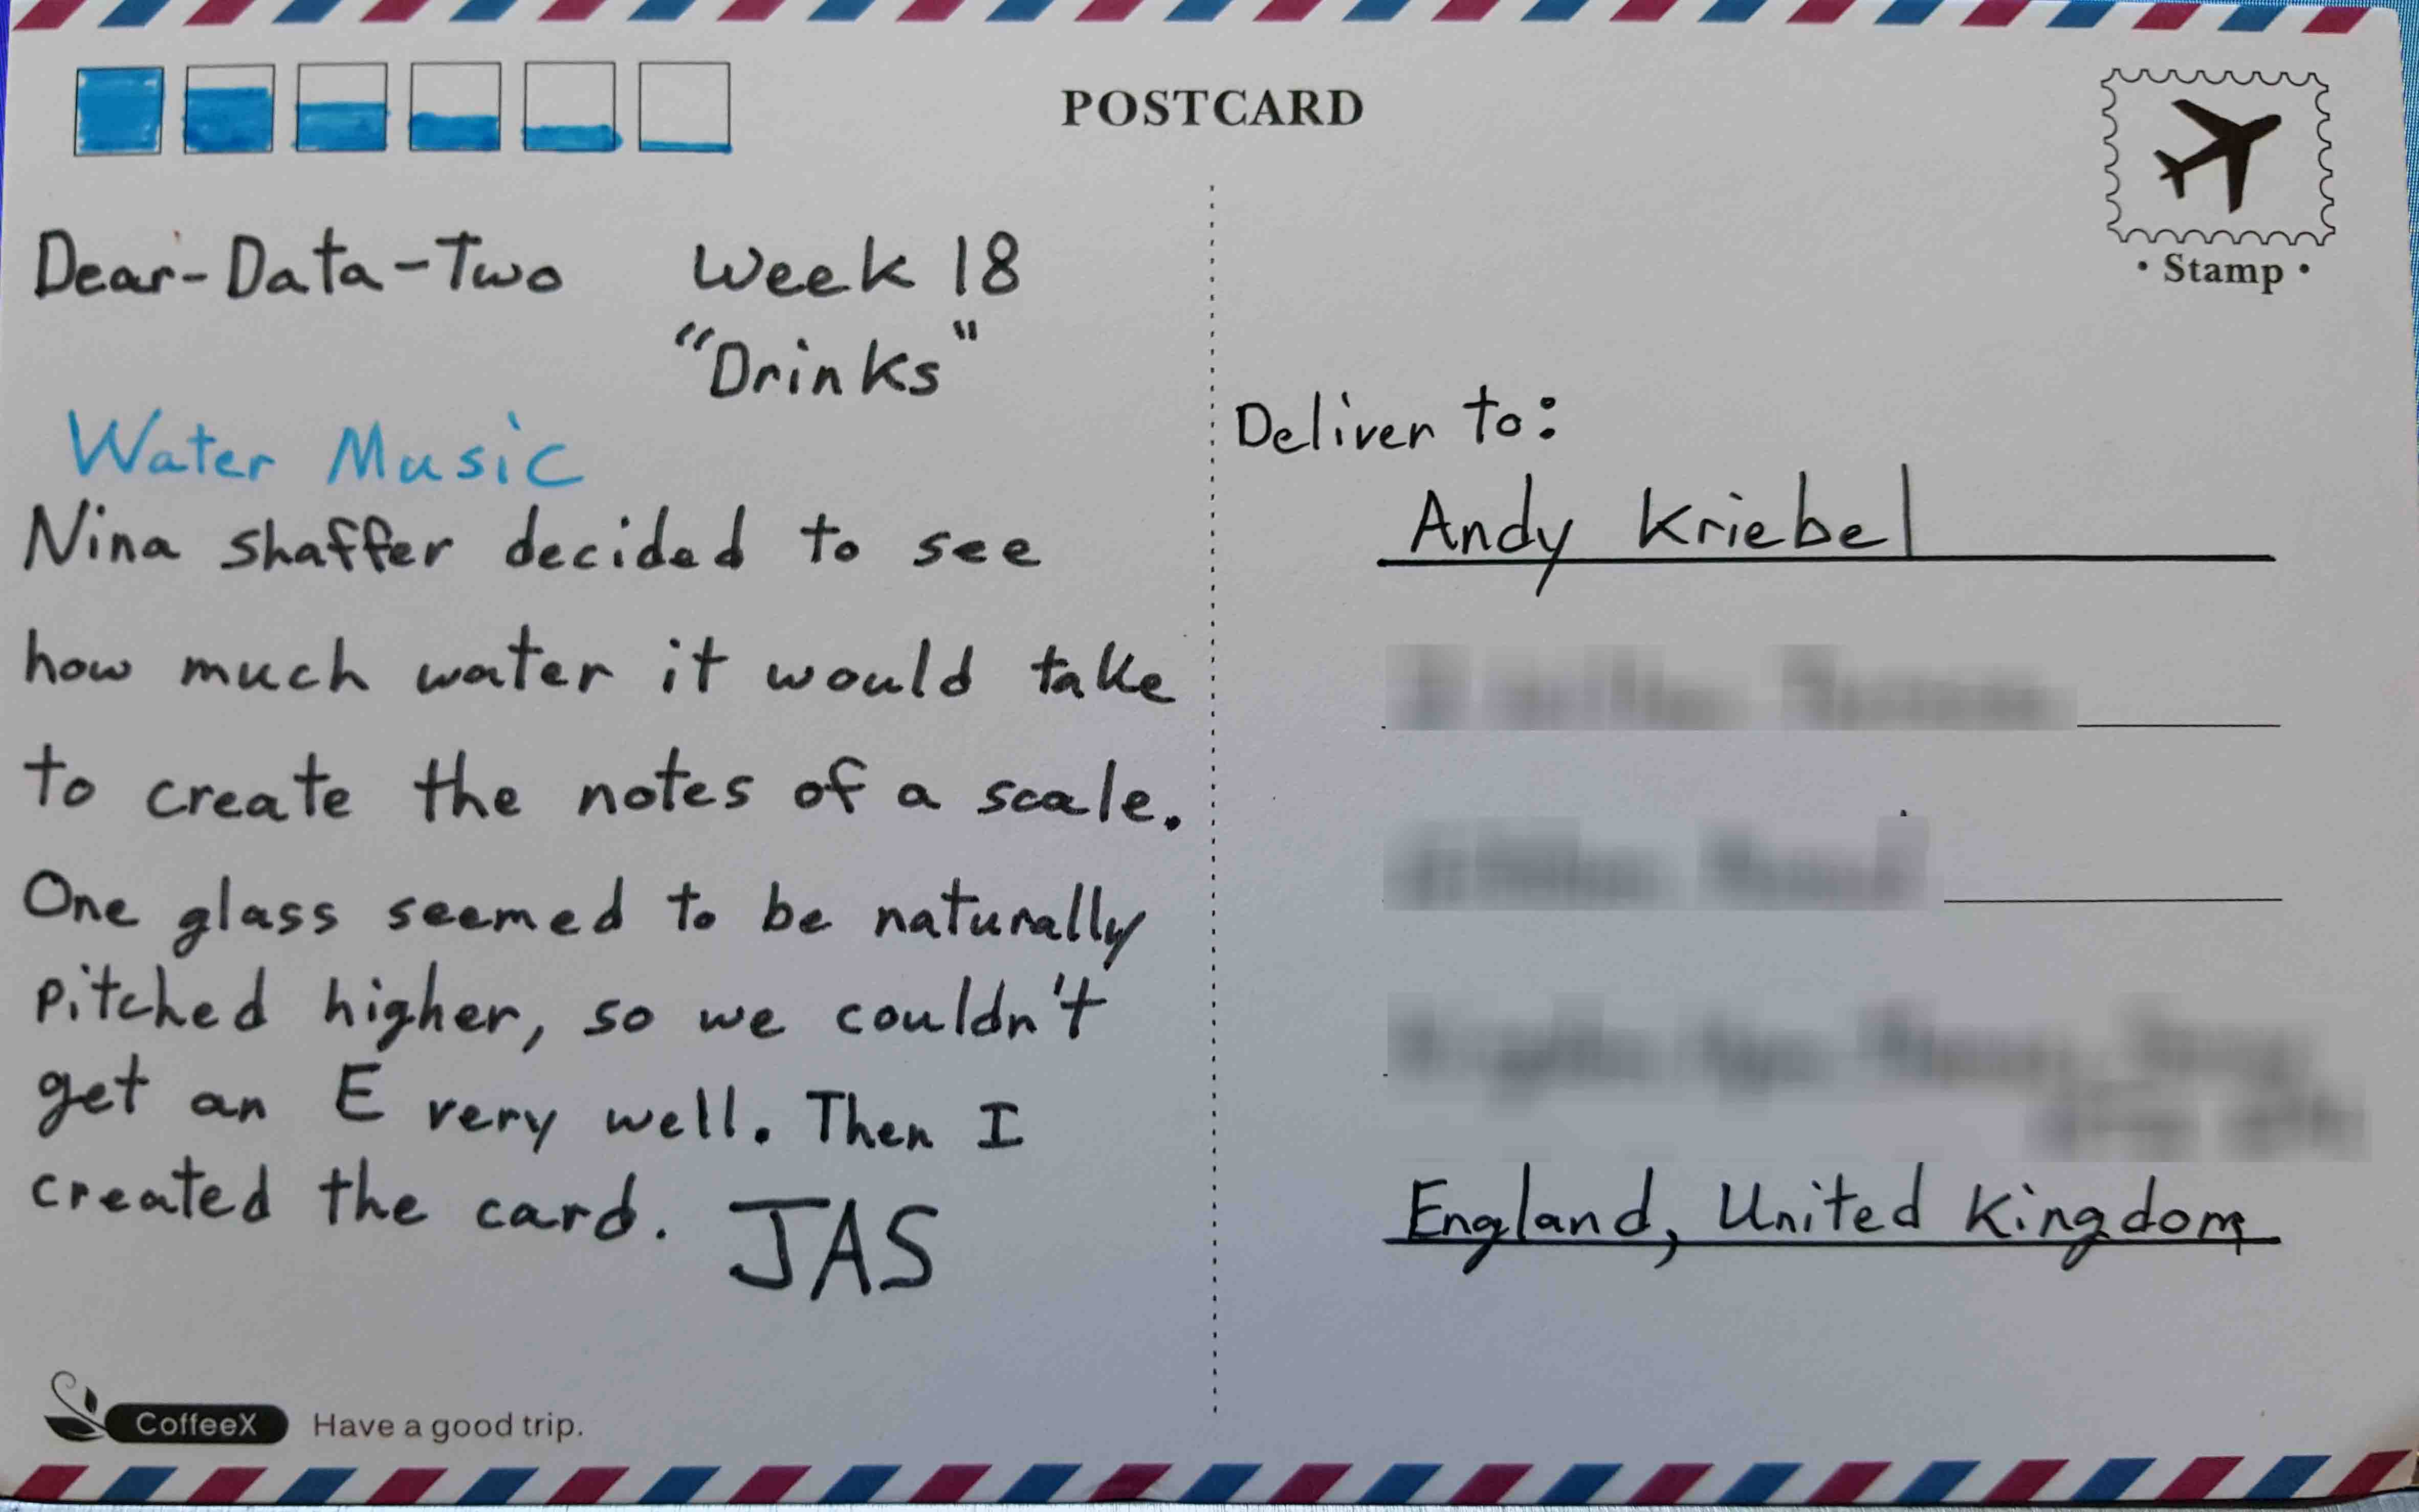 POSTCARD
• Stamp •
Dear-Data-Two Week 18
"Drinks"
Water Music
Nina Shaffer decided to see
how much water it would take
to create the notes of a scale.
One glass seemed to be naturally
pitched higher, so we couldn't
get an E very well. Then I
created the card. JAS
CoffeeX Have a good trip.
Deliver to:
Andy Kriebel
England, United Kingdom